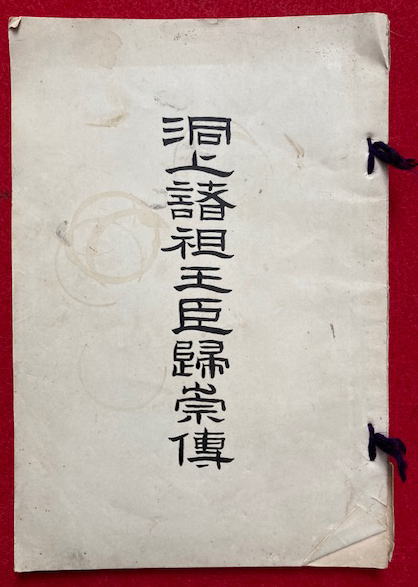 洞上諸祖王臣歸崇傳